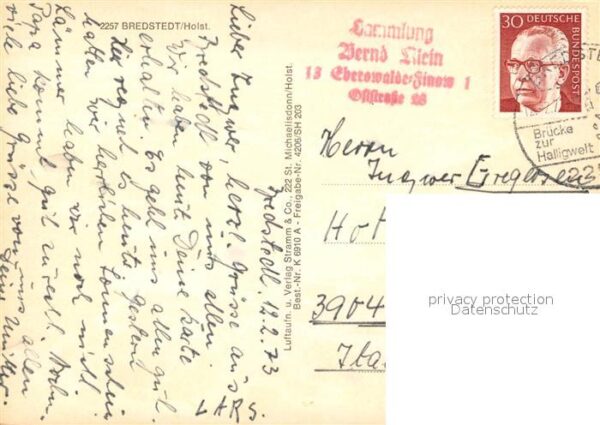 2257 BREDSTEDT/Holst.
Bredstedt, 12.2.73
Lieber Ingwer, herzl. Grüsse aus
Bredstedt von uns allen.
Wir haben heute Deine Karte
erhalten. Es geht uns allen gut.
Hier regnet es heute, gestern
hatten wir herrlichen Sonnenschein
haben wir noch nicht
Papa kommt gut zurecht.
viele liebe Grüsse von uns allen
Deine Mutter.
LARS.
Luftaufn. u. Verlag Stramm & Co., 222 St. Michaelisdonn/Holst.
Best.-Nr. K 6910 A - Freigabe-Nr. 4206/SH 203
Sammlung
Bernd Klein
13 Eberswalde-Finow 1
Oststraße 28
30 DEUTSCHE
BUNDESPOST
Brücke
zur
Halligwelt
Herrn
Ingwer Gregersen
Hot
3904
Ita
privacy protection
Datenschutz